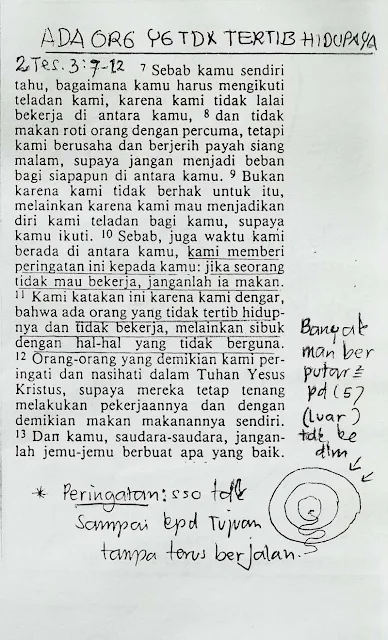 ADA ORG YG TDK TERTIB HIDUPNYA
2 Tes. 3:7-12
7 Sebab kamu sendiri
tahu, bagaimana kamu harus mengikuti
teladan kami, karena kami tidak lalai
bekerja di antara kamu, 8 dan tidak
makan roti orang dengan percuma, tetapi
kami berusaha dan berjerih payah siang
malam, supaya jangan menjadi beban
bagi siapapun di antara kamu. 9 Bukan
karena kami tidak berhak untuk itu,
melainkan karena kami mau menjadikan
diri kami teladan bagi kamu, supaya
kamu ikuti. 10 Sebab, juga waktu kami
berada di antara kamu, kami memberi
peringatan ini kepada kamu: jika seorang
tidak mau bekerja, janganlah ia makan.
11 Kami katakan ini karena kami dengar,
bahwa ada orang yang tidak tertib hidup-
nya dan tidak bekerja, melainkan sibuk
dengan hal-hal yang tidak berguna.
12 Orang-orang yang demikian kami per-
ingati dan nasihati dalam Tuhan Yesus
Kristus, supaya mereka tetap tenang
melakukan pekerjaannya dan dengan
demikian makan makanannya sendiri.
13 Dan kamu, saudara-saudara, jangan-
lah jemu-jemu berbuat apa yang baik.
Banyak
man ber
putar²
pd (5)
(luar)
tdk ke
dlm
* Peringatan: sso tdk
Sampai kpd Tujuan
tanpa terus berjalan.